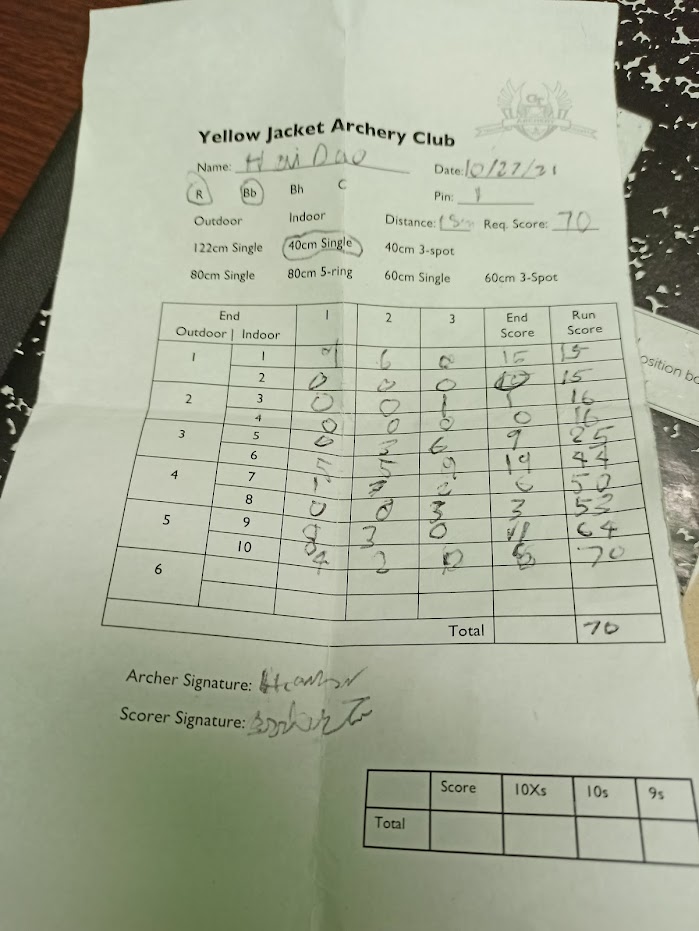 Yellow Jacket Archery Club
Name: Hai Dao Date: 10/27/21
R Bb Bh C Pin: 1
Outdoor Indoor Distance: Req. Score: 70
122cm Single 40cm Single 40cm 3-spot
80cm Single 80cm 5-ring 60cm Single 60cm 3-Spot
End 1 2 3 End Score Run Score
Outdoor | Indoor
1 1 9 6 0 15 15
2 0 0 0 15
2 3 0 0 1 1 16
4 0 0 0 0 16
3 5 0 3 6 9 25
6 5 5 9 19 44
4 7 1 6 50
8 0 0 3 3 53
5 9 8 3 0 11 64
10 4 2 70
6
Total 70
Archer Signature:
Scorer Signature:
Score 10Xs 10s 9s
Total